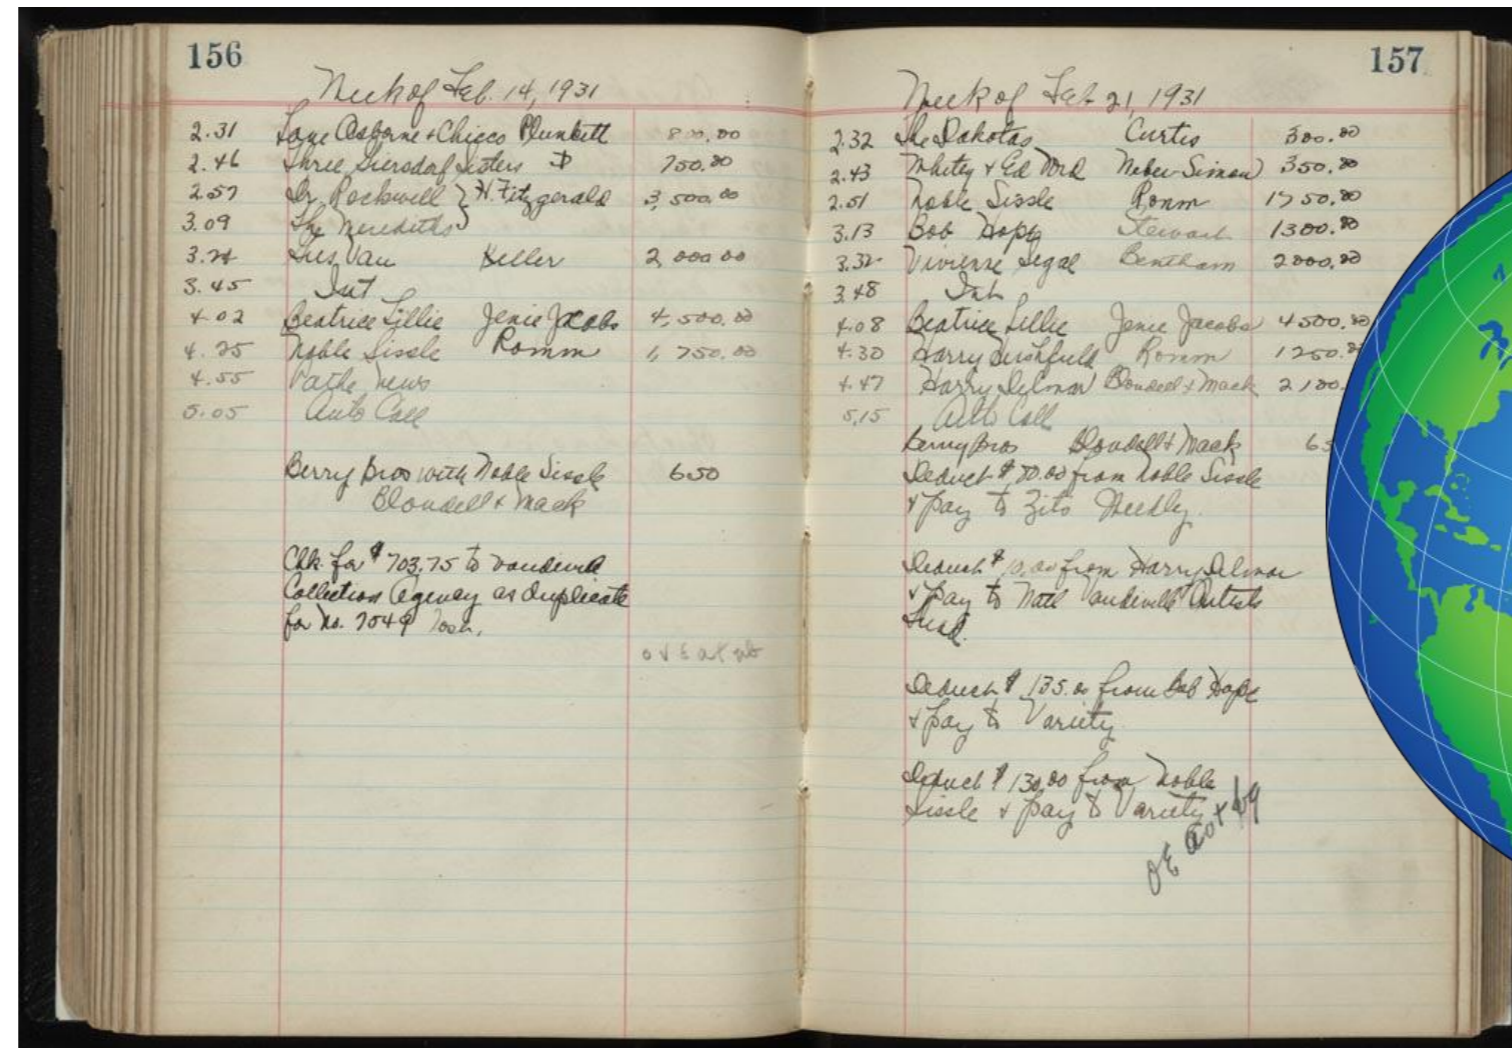 156
Week of Feb. 14, 1931
2.31 Lane Osborne + Chicco Plunkett 800.00
2.46 Three Giersdorf Sisters 750.00
2.57 Dr. Rockwell } H. Fitzgerald 3,500.00
3.09 The Merediths }
3.24 Gus Van Keller 2,000.00
3.45 Int
4.02 Beatrice Lillie Jenie Jacobs 4,500.00
4.25 Noble Sissle Romm 1,750.00
4.55 Pathe News
5.05 Auto Call
Berry Bros with Noble Sissle 650
Blondell + Mack
Chk. for $703.75 to
Collection Agency as duplicate
for No. 7049
157
Week of Feb 21, 1931
2.32 The Dakotas Curtis 300.00
2.43 Whitey + Ed Ford Weber-Simon 350.00
2.51 Noble Sissle Romm 1750.00
3.13 Bob Hope Stewart 1300.00
3.32 Vivienne Segal Bentham 2000.00
3.48 Int.
4.08 Beatrice Lillie Jenie Jacobs 4500.00
4.30 Harry Hershfield Romm 1250.
4.47 Harry Delmar Blondell + Mack 2100.
5.15 Auto Call
Berry Bros Blondell + Mack
Deduct from Noble Sissle
+ pay to Zits Weekly.
Deduct $10.00 from Harry Delmar
+ pay to Natl Vaudeville Artists
Fund.
Deduct $135.00 from Bob Hope
+ pay to Variety
Deduct $130.00 from Noble
Sissle + pay to Variety